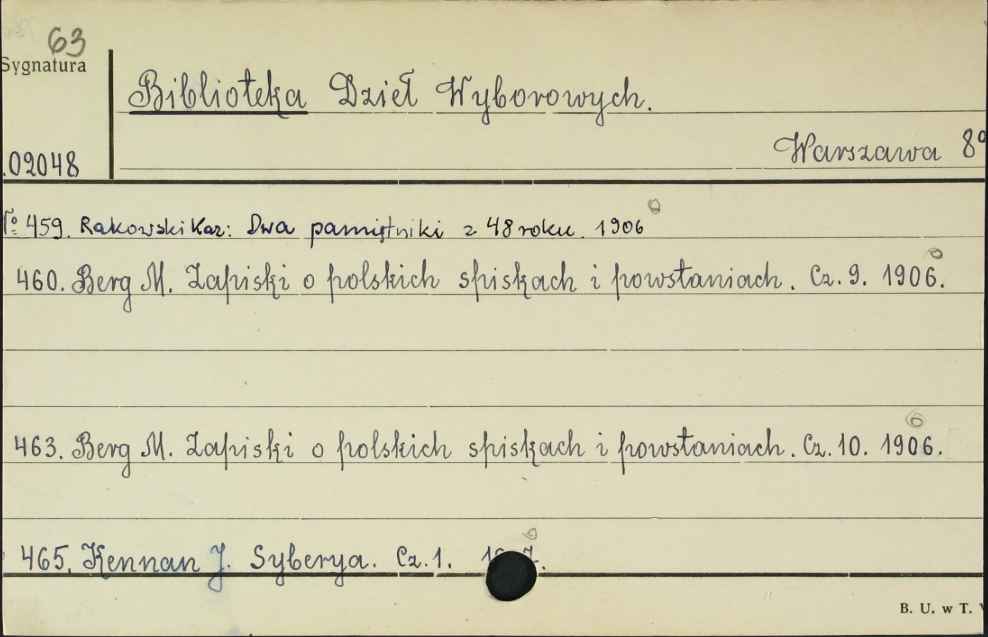 63
Sygnatura
Biblioteka Dzieł Wyborowych.
Warszawa 8º
.02048
№ 459. Rakowski Kaz: Dwa pamiętniki z 48 roku. 1906
460. Berg M. Zapiski o polskich spiskach i powstaniach. Cz. 9. 1906.
463. Berg M. Zapiski o polskich spiskach i powstaniach. Cz. 10. 1906.
465. Kennan J. Syberya. Cz. 1.
B. U. w T.